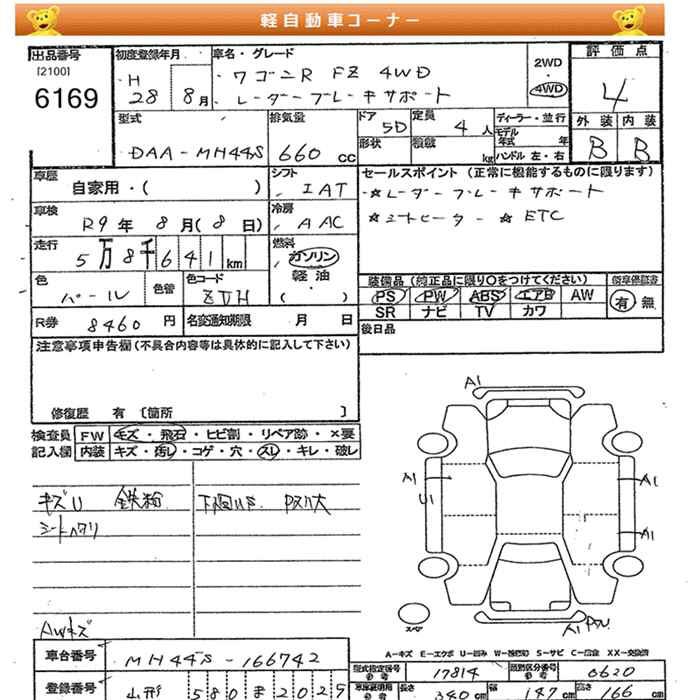 軽自動車コーナー
出品番号
[2100]
6169
初度登録年月
H
28 8月
車名・グレード
ワゴンR FZ 4WD
レーダーブレーキサポート
2WD
4WD
評価点
4
外装 内装
B B
型式
DAA-MH44S
排気量
660 cc
ドア
5D
形状
定員
4人
積載
kg
ディーラー・並行
モデル年式 年
ハンドル 左・右
車歴
自家用・( )
シフト
IAT
セールスポイント (正常に機能するものに限ります)
☆レーダーブレーキサポート
☆シートヒーター ☆ETC
車検
R9年 8月(8日)
冷房
AAC
走行
5万8千641km
燃料
ガソリン
軽油
( )
色
パール
色替
色コード
ZVH
装備品 (純正品に限り○をつけてください)
PS PW ABS エアB AW
SR ナビ TV カワ
新車保証書
有 無
R券 8460円
名変通知期限 月 日
後日品
注意事項申告欄 (不具合内容等は具体的に記入して下さい)
修復歴 有 〔箇所 〕
検査員記入欄
FW キズ・飛石・ヒビ割・リペア跡・×要
内装 キズ・汚れ・コゲ・穴・スレ・キレ・破し
キズU 鉄粉
シートヘタリ
AWキズ
A1
A1
U1
A1
A1
スペア
A-キズ E-エクボ U-凹み W-補修跡 S-サビ C-腐食 XX-交換済
車台番号
MH44S-166742
型式指定番号
参考
17814
類別区分番号
参考
0620
登録番号
山形 580 ま 2029
車庫証明用
参考
長さ
340cm
幅
147cm
高さ
166cm